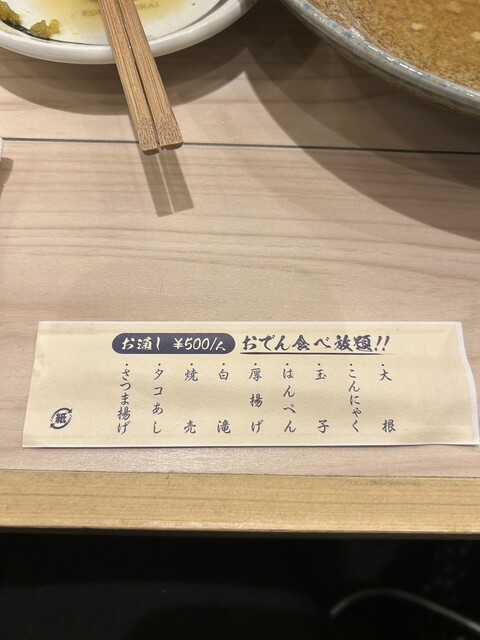 お通し ¥500/人 おでん食べ放題!!
・大根
・こんにゃく
・玉子
・はんぺん
・厚揚げ
・白滝
・焼売
・タコあし
・さつま揚げ
紙